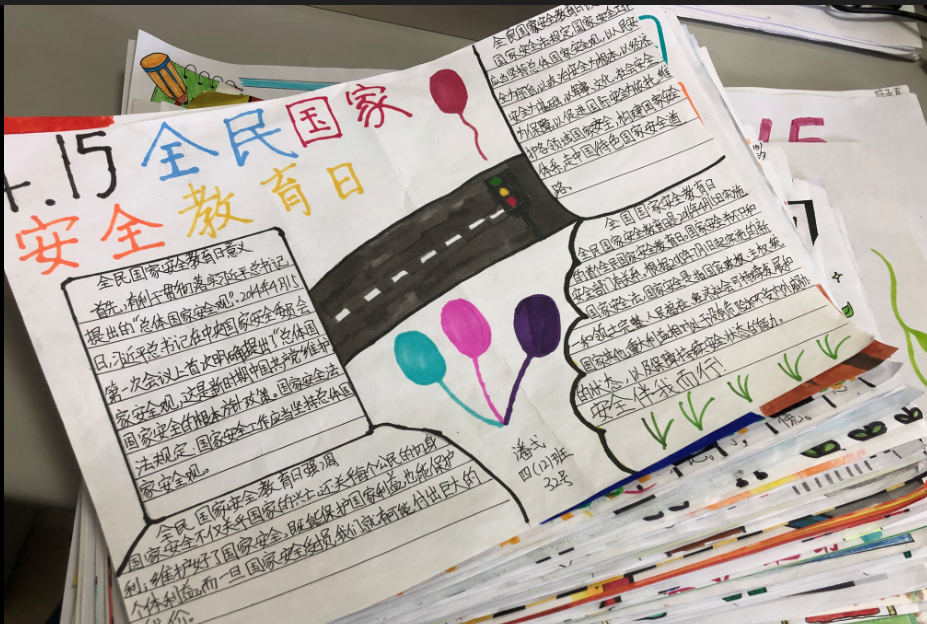 4.15全民国家
安全教育日
全民国家安全教育日意义
首先,有利于贯彻落实习近平总书记
提出的"总体国家安全观"。2014年4月15
日,习近平总书记在中央国家安全委员会
第一次会议上首次明确提出了"总体国
家安全观,这是新时期中国共产党维护
国家安全的根本方针政策。国家安全法
法规定:国家安全工作应当坚持总体国
家安全观。
全民国家安全教育日
国家安全法规定国家安全工作
应当坚持总体国家安全观,以人民安
全为宗旨,以政治安全为根本,以经济
安全为基础,以军事、文化、社会安全
为保障,以促进国际安全为依托,维
护各领域国家安全,构建国家安全
体系,走中国特色国家安全道
路。
全国国家安全教育日
全民国家安全教育日是
的首个全民国家安全教育日,国家安全
安全部门有关系。根据
国家安全法,国家安全是指国家政权、主权、统
一和领土完整、人民福祉、经济社会可持续发展和
国家其他重大利益相对处于没有危险和不受内外威胁
的状态,以及保障持续安全状态的能力。
安全伴我而行!
全民国家安全教育日强调
国家安全不仅关乎国家的兴亡,还关乎每个公民的切身
利;维护好了国家安全,既能保护国家利益也能保护
个体利益,而一旦国家安全
我们就有可能付出巨大的
代价。
潘弋
四(12)班
32号
15